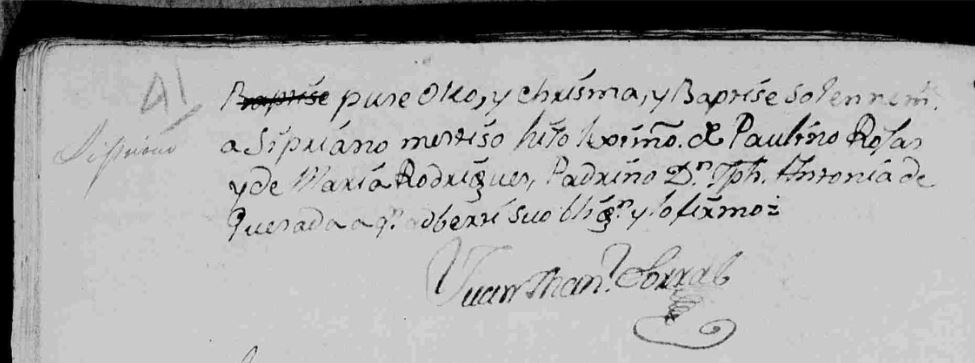 Baptise puse Oleo, y chrisma, y Baptise solennemte.
a Sipriano mestiso hijo lexitmo. de Paulino Rosas
y de Maria Rodrigues, Padrino Dn. Jph. Antonia de
Quesada a qn. adberti suo bligon y lo firmo
Sipriano
Juan Manl. Corral